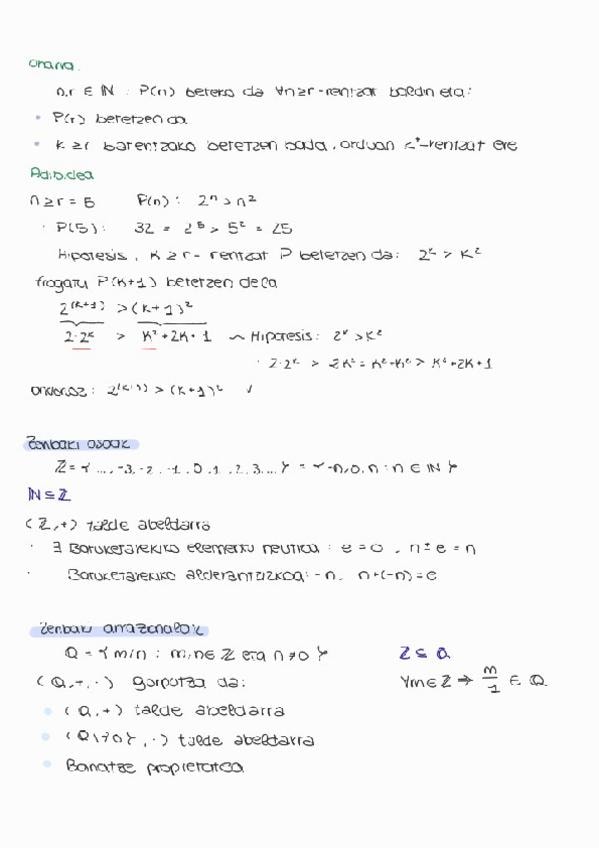 Oharra.
n,r ∈ ℕ : P(n) beteko da ∀n≥r-rentzat baldin eta:
• P(r) betetzen da
• k ≥r batentzako betetzen bada, orduan k⁺-rentzat ere
Adibidea
n≥r = 5 P(n) : 2ⁿ > n²
· P(5) : 32 = 2⁵ > 5² = 25
Hipotesis, k≥r- rentzat P betetzen da: 2ᵏ > k²
frogatu P(k+1) betetzen dela
2⁽ᵏ⁺¹⁾ > (k+1)²
2·2ᵏ > k²+2k+1 ~ Hipotesis: 2ᵏ > k²
· 2·2ᵏ > 2k² = k²+k² > k²+2k+1
ondorioz: 2⁽ᵏ⁺¹⁾ > (k+1)² ✓
Zenbaki osoak
ℤ = {..., -3, -2, -1, 0, 1, 2, 3, ...} = {-n, 0, n : n ∈ ℕ}
ℕ ⊆ ℤ
(ℤ, +) talde abeldarra
· ∃ Batuketarekiko elementu neutroa : e = 0, n + e = n
· Batuketarekiko alderantzizkoa: -n, n+(-n) = e
Zenbaki arrazionalok
ℚ = {m/n : m,n ∈ ℤ eta n ≠ 0} ℤ ⊆ ℚ
(ℚ, +, ·) gorputza da: ∀m ∈ ℤ → m/1 ∈ ℚ
• (ℚ, +) talde abeldarra
• (ℚ\{0}, ·) talde abeldarra
• Banatze propietatea